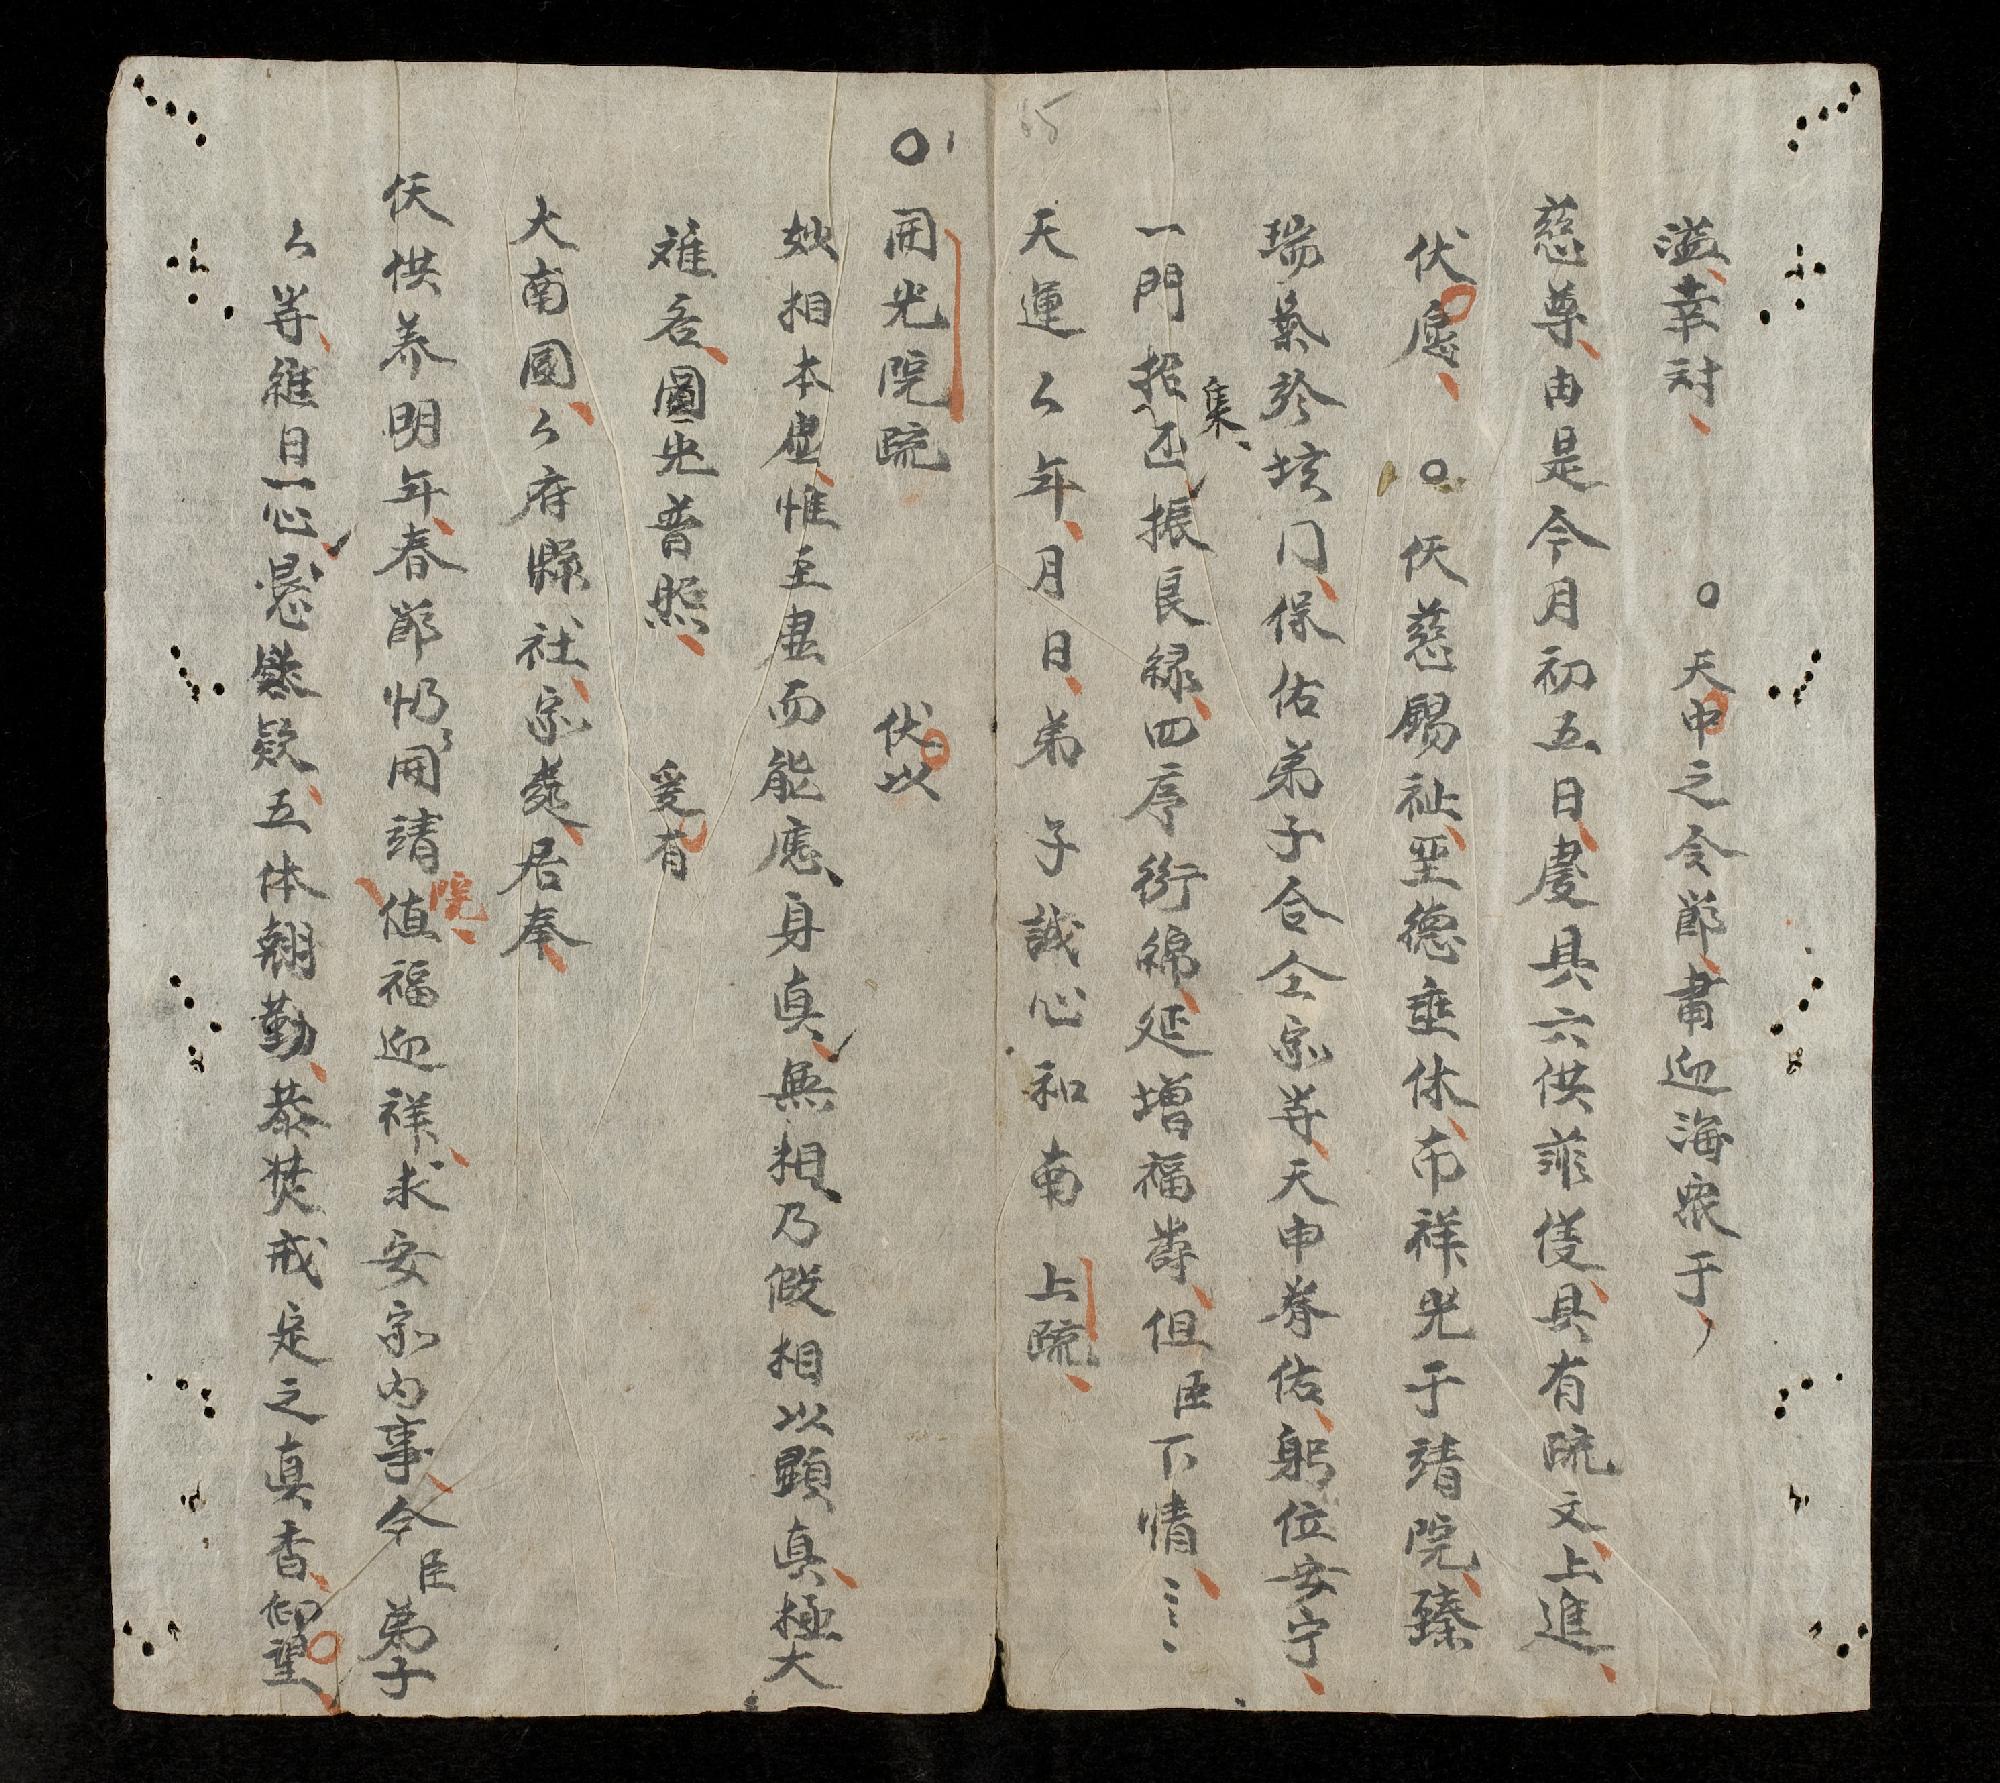 溢幸对 〇天申之令節肅迎海眾于
慈尊由是今月初五日虔具六供菲仪具有疏文上進
伏愿 〇伏慈賜祉至德垂休布祥光于靖院臻
瑞氣於垓门保佑弟子合仝宗等天申眷佑躬位安宁
一門招集迓振良緣四序衍綿延增福壽但臣下情〻〻
天運厶年月日弟子誠心和南 上疏
15
〇開光院疏 伏以
妙相本虛惟至虛而能應身真無相乃假相以顕真極大
难名圓光普照 爰有
大南國厶府縣社宗 居奉
伏供养明年春節仍開靖院值福迎祥求安宗内事今臣弟子
厶等維日一心懇 五体翹勤恭焚戒定之真香仰望